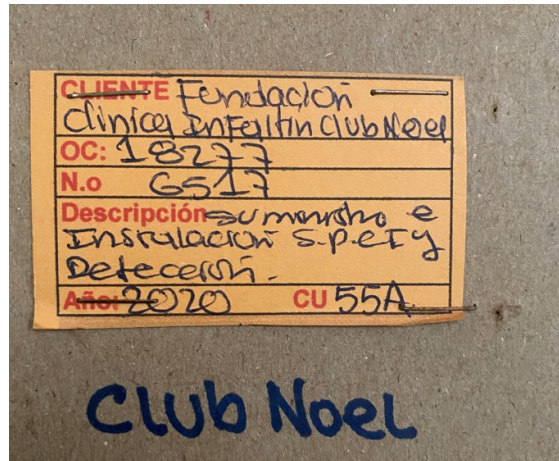 CLIENTE Fundacion
Clinica Infaltin Club Noel
OC: 18277
N.o 6517
Descripción suministro e
Instalacion S.P.e I y
Detecerón.
Año: 2020 CU 55A
Club Noel